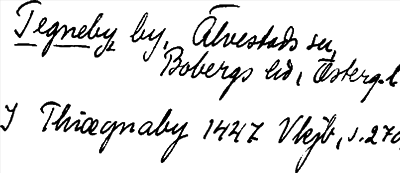 Tegneby by, Älvestads sn,
Bobergs hd, Österg.l
I Thiægnaby 1447 Vkjb, s. 270